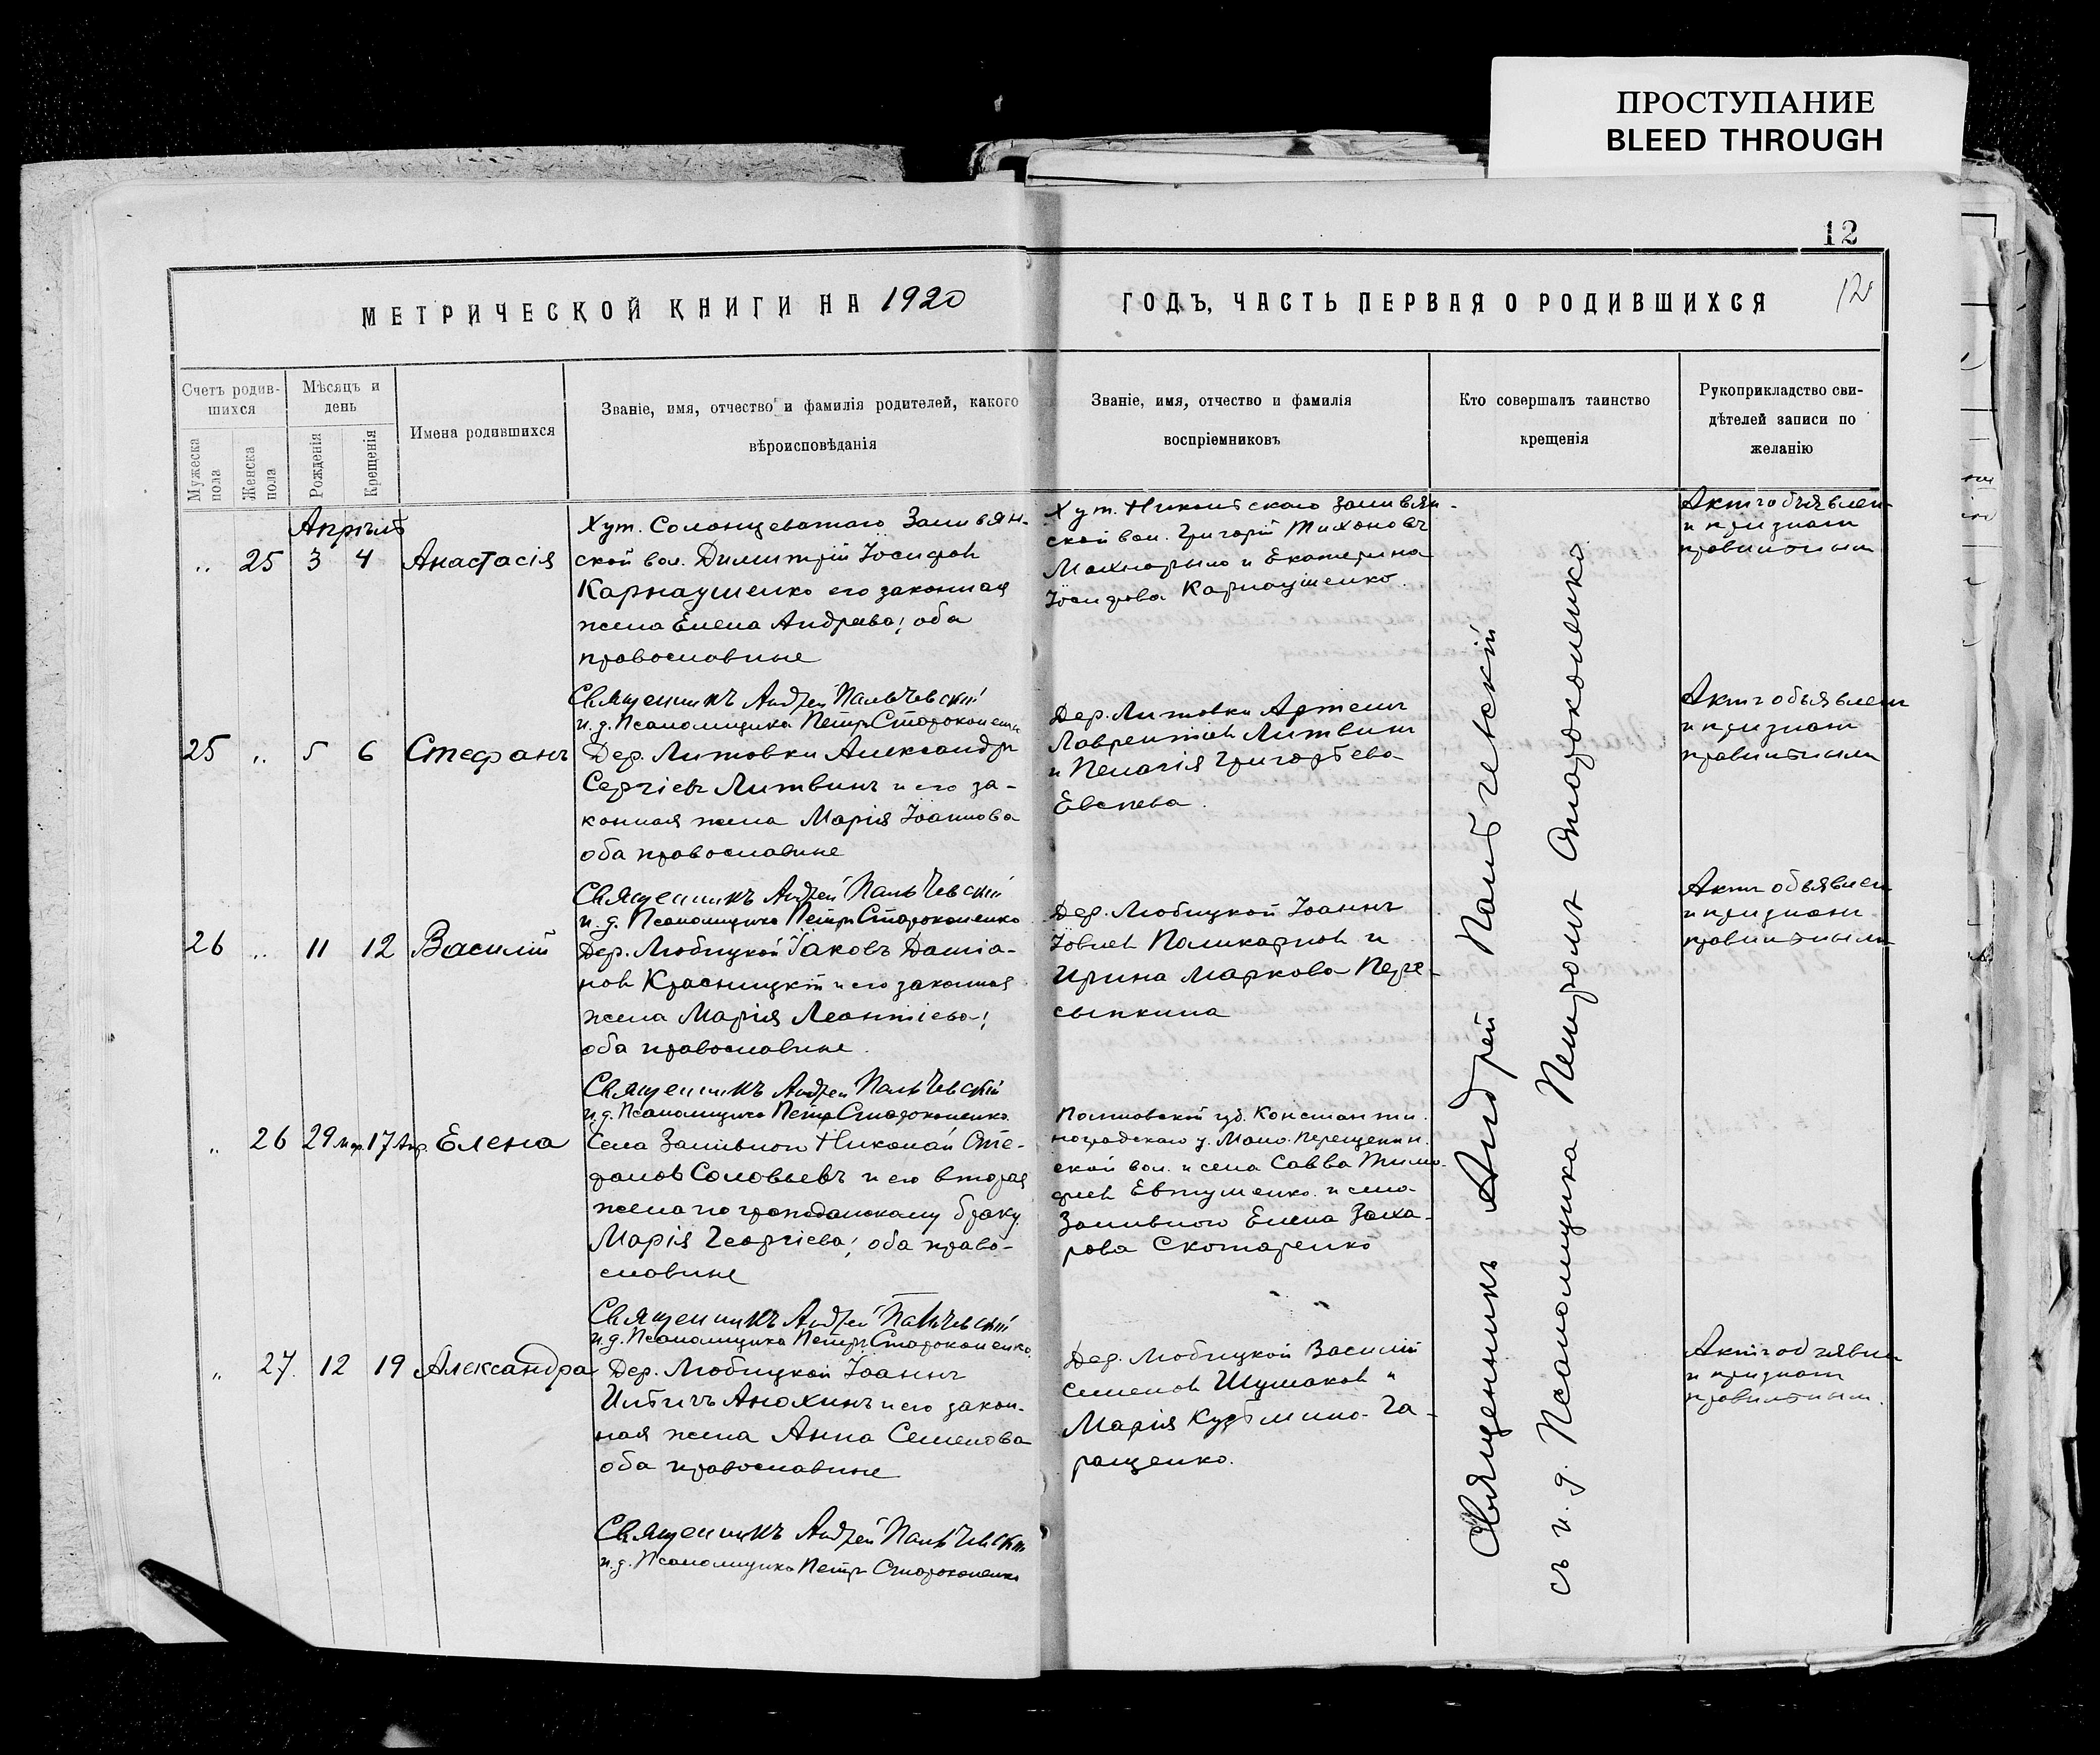 ПРОСТУПАНИЕ
BLEED THROUGH
12
МЕТРИЧЕСКОЙ КНИГИ НА 1920
ГОДЪ, ЧАСТЬ ПЕРВАЯ О РОДИВШИХСЯ
12
Счетъ родив-
шихся
Мѣсяцъ и
день
Мужеска
пола
Женска
пола
Рожденія
Крещенія
Имена родившихся
Званіе, имя, отчество и фамилія родителей, какого
вѣроисповѣданія
Званіе, имя, отчество и фамилія
воспріемниковъ
Кто совершалъ таинство
крещенія
Рукоприкладство сви-
дѣтелей записи по
желанію
Апрѣль
„ 25 3 4 Анастасія
Хут. Солонцеватаго Заливян-
ской вол. Димитрій Іосифов
Карнаушенко его законная
жена Елена Андреева; оба
православные
Священникъ Андрей Пальчевскій
и.д. Псаломщика Петръ Староконенко
Хут. Никольскаго Заливян-
ской вол. Григорій Тихоновъ
и Екатерина
Іосифова Карнаушенко.
Актъ объявлен
и признан
правильным
25 „ 5 6 Стефанъ
Дер. Литовки Александръ
Сергіевъ Литвинъ и его за-
конная жена Марія Іоаннова
оба православные
Священникъ Андрей Пальчевскій
и.д. Псаломщика Петръ Староконенко
Дер. Литовки Артемъ
Лаврентіев Литвин
и Пелагія Григорьева
Актъ объявлен
и признан
правильным
26 „ 11 12 Василій
Дер. Любицкой Іаковъ Даміа-
нов Красницкій и его законная
жена Марія Леонтіева;
оба православные.
Священникъ Андрей Пальчевскій
и.д. Псаломщика Петръ Староконенко
Дер. Любицкой Іоаннъ
Іовлев Поликарпов и
Ирина Маркова Пере-
сыпкина
Актъ объявлен
и признан
правильным
„ 26 29 мар. 17 Апр. Елена
Села Заливного Николай Сте-
фанов Соловьевъ и его вторая
жена по гражданскому браку
Марія Георгіева; оба право-
славные
Священникъ Андрей Пальчевскій
и.д. Псаломщика Петръ Староконенко
Полтавской губ. Константи-
ноградскаго у. Мало-Перещепин-
ской вол. и села Савва Тимо-
феев Евтушенко и села
Заливного Елена Заха-
рова Скотаренко
„ 27. 12 19 Александра
Дер. Любицкой Іоаннъ
Ильичъ Анохинъ и его закон-
ная жена Анна Семенова
оба православные
Священникъ Андрей Пальчевскій
и.д. Псаломщика Петръ Староконенко
Дер. Любицкой Василій
Семенов Шумаков и
Марія Кузьмина Га-
ращенко.
Актъ объявлен
и признан
правильным.
Священникъ Андрей Пальчевскій
съ и.д. Псаломщика Петромъ Староконенко